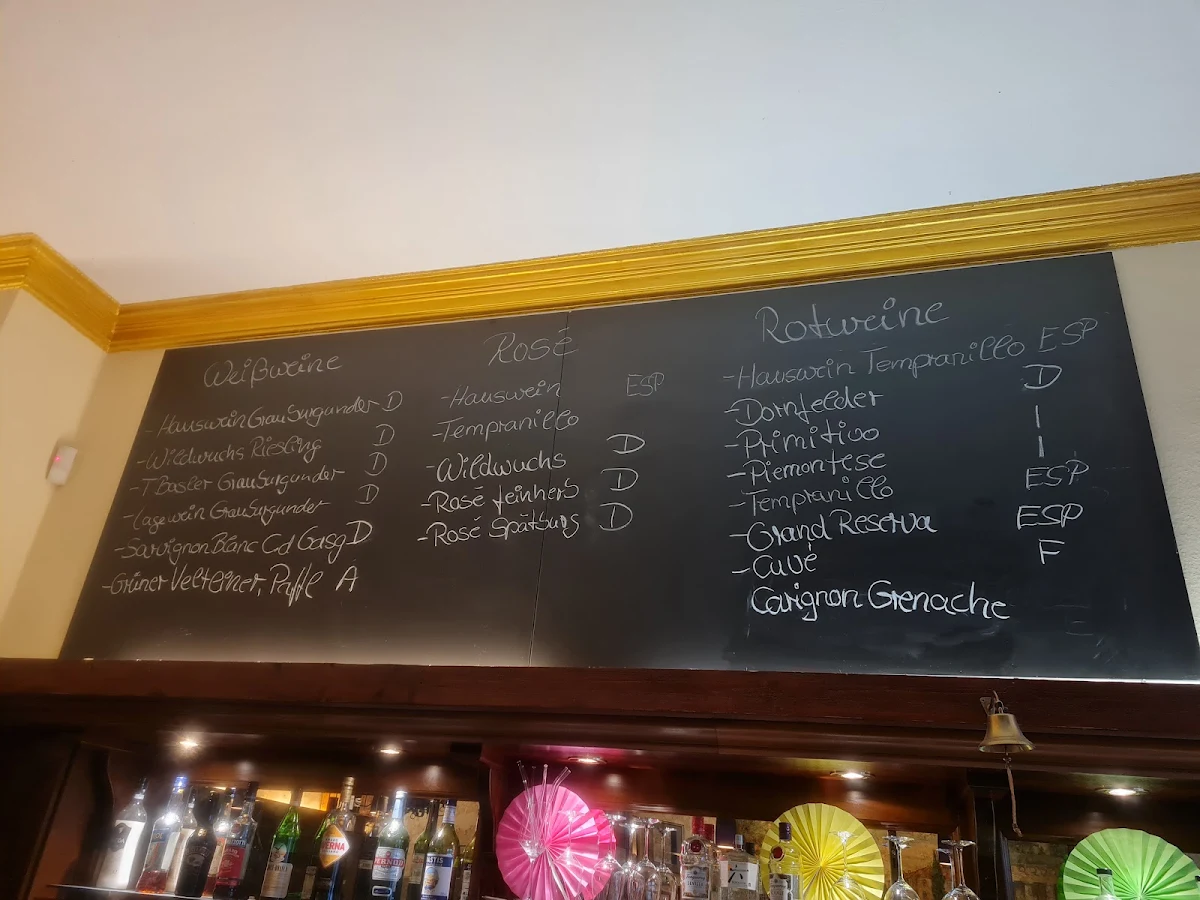 Weißweine
-Hauswein Grauburgunder D
-Wildwuchs Riesling D
-T Basler Grauburgunder D
-Lagewein Grauburgunder D
-Sauvignon Blanc Cd Gasg D
-Grüner Velteiner, Pfaffl A
Rosé
-Hauswein ESP
-Tempranillo
-Wildwuchs D
-Rosé feinherb D
-Rosé Spätburg D
Rotweine
-Hauswein Tempranillo ESP
-Dornfelder D
-Primitivo I
-Piemontese I
-Tempranillo ESP
-Grand Reserva ESP
-Cuvé F
Carignon Grenache